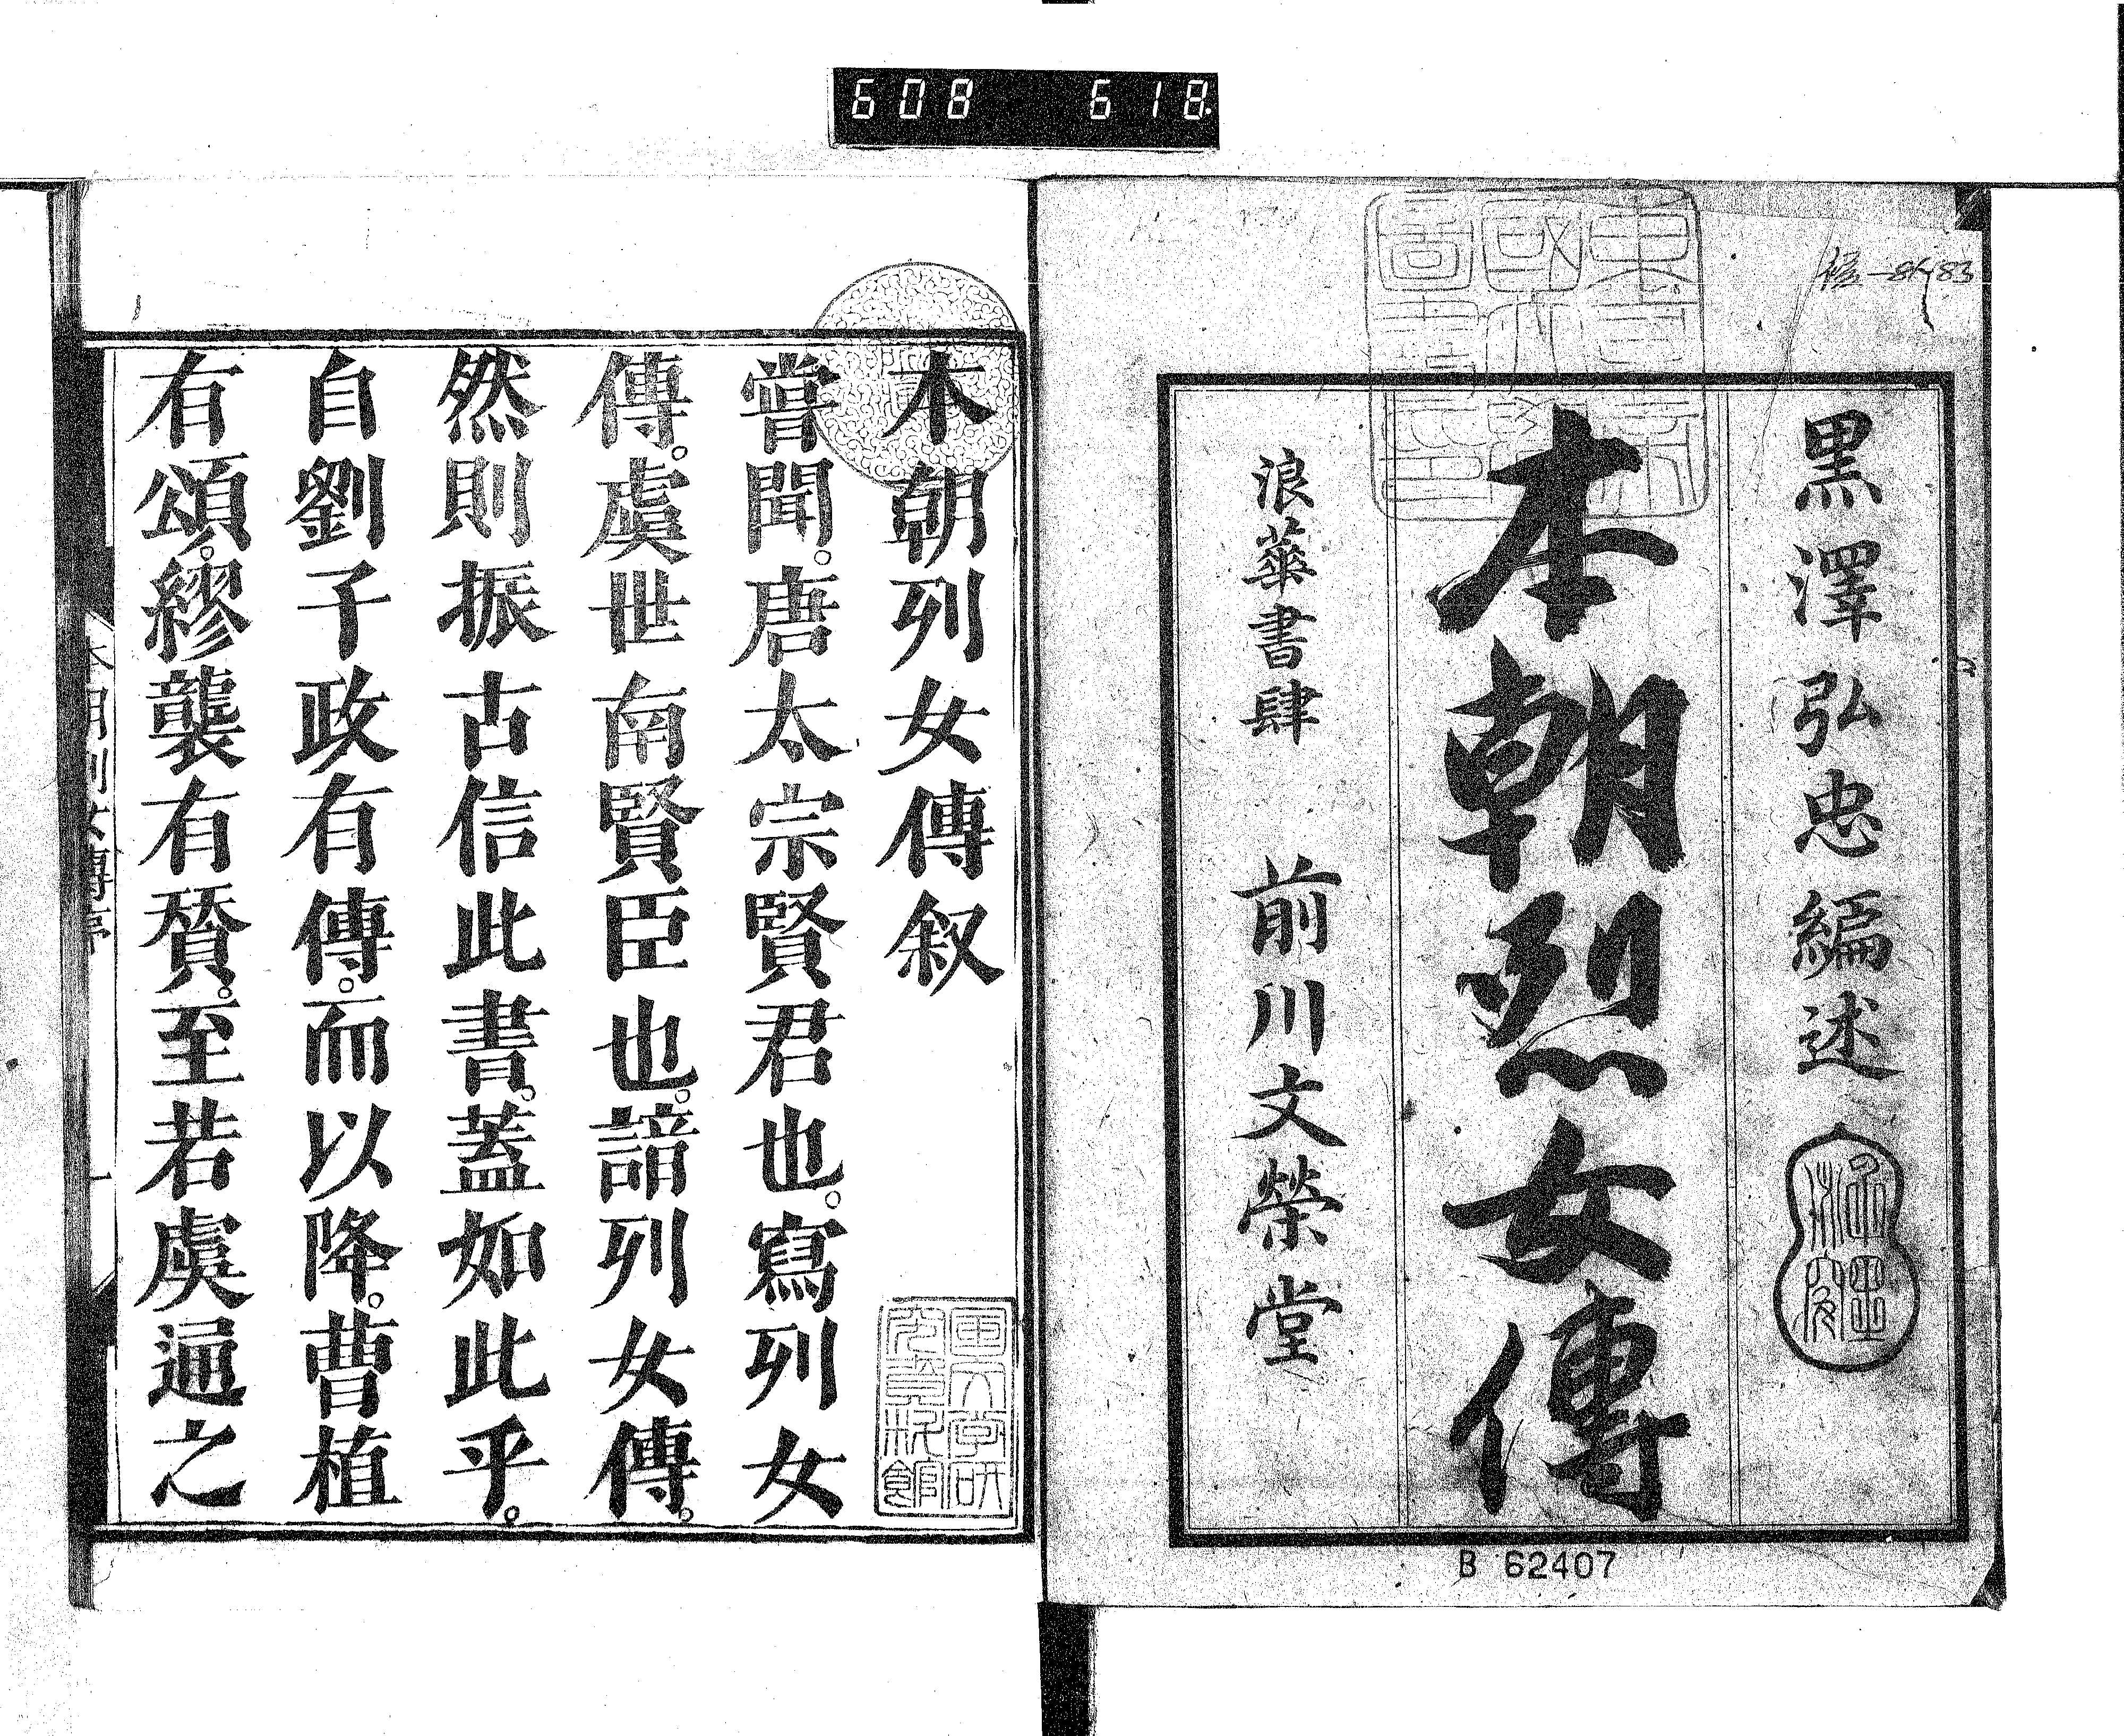 608 618
黒澤弘忠編述
本朝烈女傳
浪華書肆 前川文榮堂
B 62407
本朝列女傳叙
嘗聞。唐太宗賢君也。寫列女
傳。虞世南賢臣也。諳列女傳。
然則振古信此書。蓋如此乎。
自劉子政有傳。而以降。曹植
有頌。繆襲有賛。至若虞通之